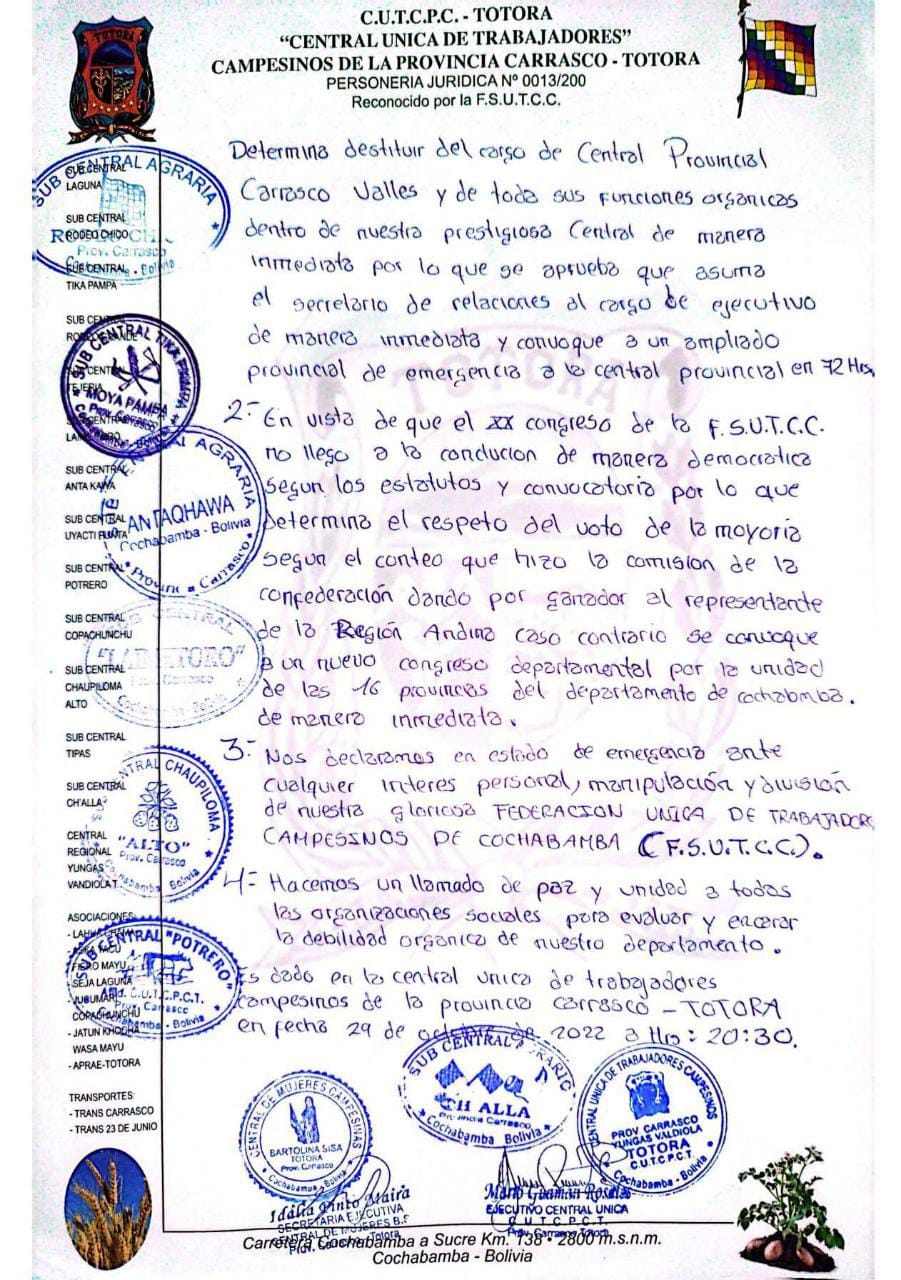 C.U.T.C.P.C. - TOTORA
“CENTRAL UNICA DE TRABAJADORES”
CAMPESINOS DE LA PROVINCIA CARRASCO - TOTORA
PERSONERIA JURIDICA Nº 0013/200
Reconocido por la F.S.U.T.C.C.
TOTORA
Determina destituir del cargo de Central Provincial
Carrasco Valles y de toda sus funciones organicas
dentro de nuestra prestigiosa Central de manera
inmediata por lo que se aprueba que asuma
el secretario de relaciones al cargo de ejecutivo
de manera inmediata y convoque a un ampliado
provincial de emergencia a la central provincial en 72 Hrs,
2- En vista de que el XX congreso de la F.S.U.T.C.C.
no llego a la conclucion de manera democratica
segun los estatutos y convocatoria por lo que
Determina el respeto del voto de la mayoria
segun el conteo que hizo la comision de la
confederación dando por ganador al representante
de la Región Andina caso contrario se convoque
a un nuevo congreso departamental por la unidad
de las 16 provincias del departamento de cochabmba.
de manera inmediata.
3- Nos declaramos en estado de emergencia ante
cualquier interes personal, manipulación y división
de nuestra gloriosa FEDERACION UNICA DE TRABAJADORE
CAMPESINOS DE COCHABAMBA (F.S.U.T.C.C.).
4- Hacemos un llamado de paz y unidad a todas
las organizaciones sociales para evaluar y encerar
la debilidad organica de nuestro departamento.
Es dado en la central unica de trabajadores
campesinos de la provincia carrasco - TOTORA
en fecha 29 de octubre de 2022 a Hrs: 20:30.
SUB CENTRAL
LAGUNA
SUB CENTRAL
RODEO CHICO
SUB CENTRAL
TIKA PAMPA
SUB CENTRAL
SUB CENTRAL
ANTA KAWA
SUB CENTRAL
UYACTI PUNTA
SUB CENTRAL
POTRERO
SUB CENTRAL
COPACHUNCHU
SUB CENTRAL
CHAUPILOMA
ALTO
SUB CENTRAL
TIPAS
SUB CENTRAL
CH'ALLA
CENTRAL
REGIONAL
YUNGAS
VANDIOLA T.
ASOCIACIONES:
MAYU
- SEJA LAGUNA
COPACHUNCHU
- JATUN KHOCHA
WASA MAYU
- APRAE-TOTORA
TRANSPORTES:
- TRANS CARRASCO
- TRANS 23 DE JUNIO
SUB CENTRAL AGRARIA
Prov. Carrasco
- Bolivia
SUB CENTRAL TIKA PAMPA
MOYA PAMPA
Prov. Carrasco
Cochabamba - Bolivia
CENTRAL AGRARIA
ANTAQHAWA
Cochabamba - Bolivia
Provincia Carrasco
CENTRAL
Prov. Carrasco
CENTRAL CHAUPILOMA
"ALTO"
Prov. Carrasco
Cochabamba Bolivia
SUB CENTRAL "POTRERO"
Afid. C.U.T.C.P.C.T.
Prov. Carrasco
Cochabamba - Bolivia
CENTRAL DE MUJERES CAMPESINAS
BARTOLINA SISA
TOTORA
Prov. Carrasco
Cochabamba - Bolivia
SUB CENTRAL
CH ALLA
Provincia Carrasco
Cochabamba Bolivia
CENTRAL UNICA DE TRABAJADORES CAMPESINOS
PROV. CARRASCO
YUNGAS VALDIOLA
TOTORA
C.U.T.C.P.C.T.
Cochabamba - Bolivia
Idalia Pinto Maira
SECRETARIA EJECUTIVA
CENTRAL DE MUJERES B.S
Mario Guaman Rosales
EJECUTIVO CENTRAL UNICA
C.U.T.C.P.C.T.
Prov. Carrasco Totora
Carretera Cochabamba a Sucre Km. 138 • 2800 m.s.n.m.
Cochabamba - Bolivia